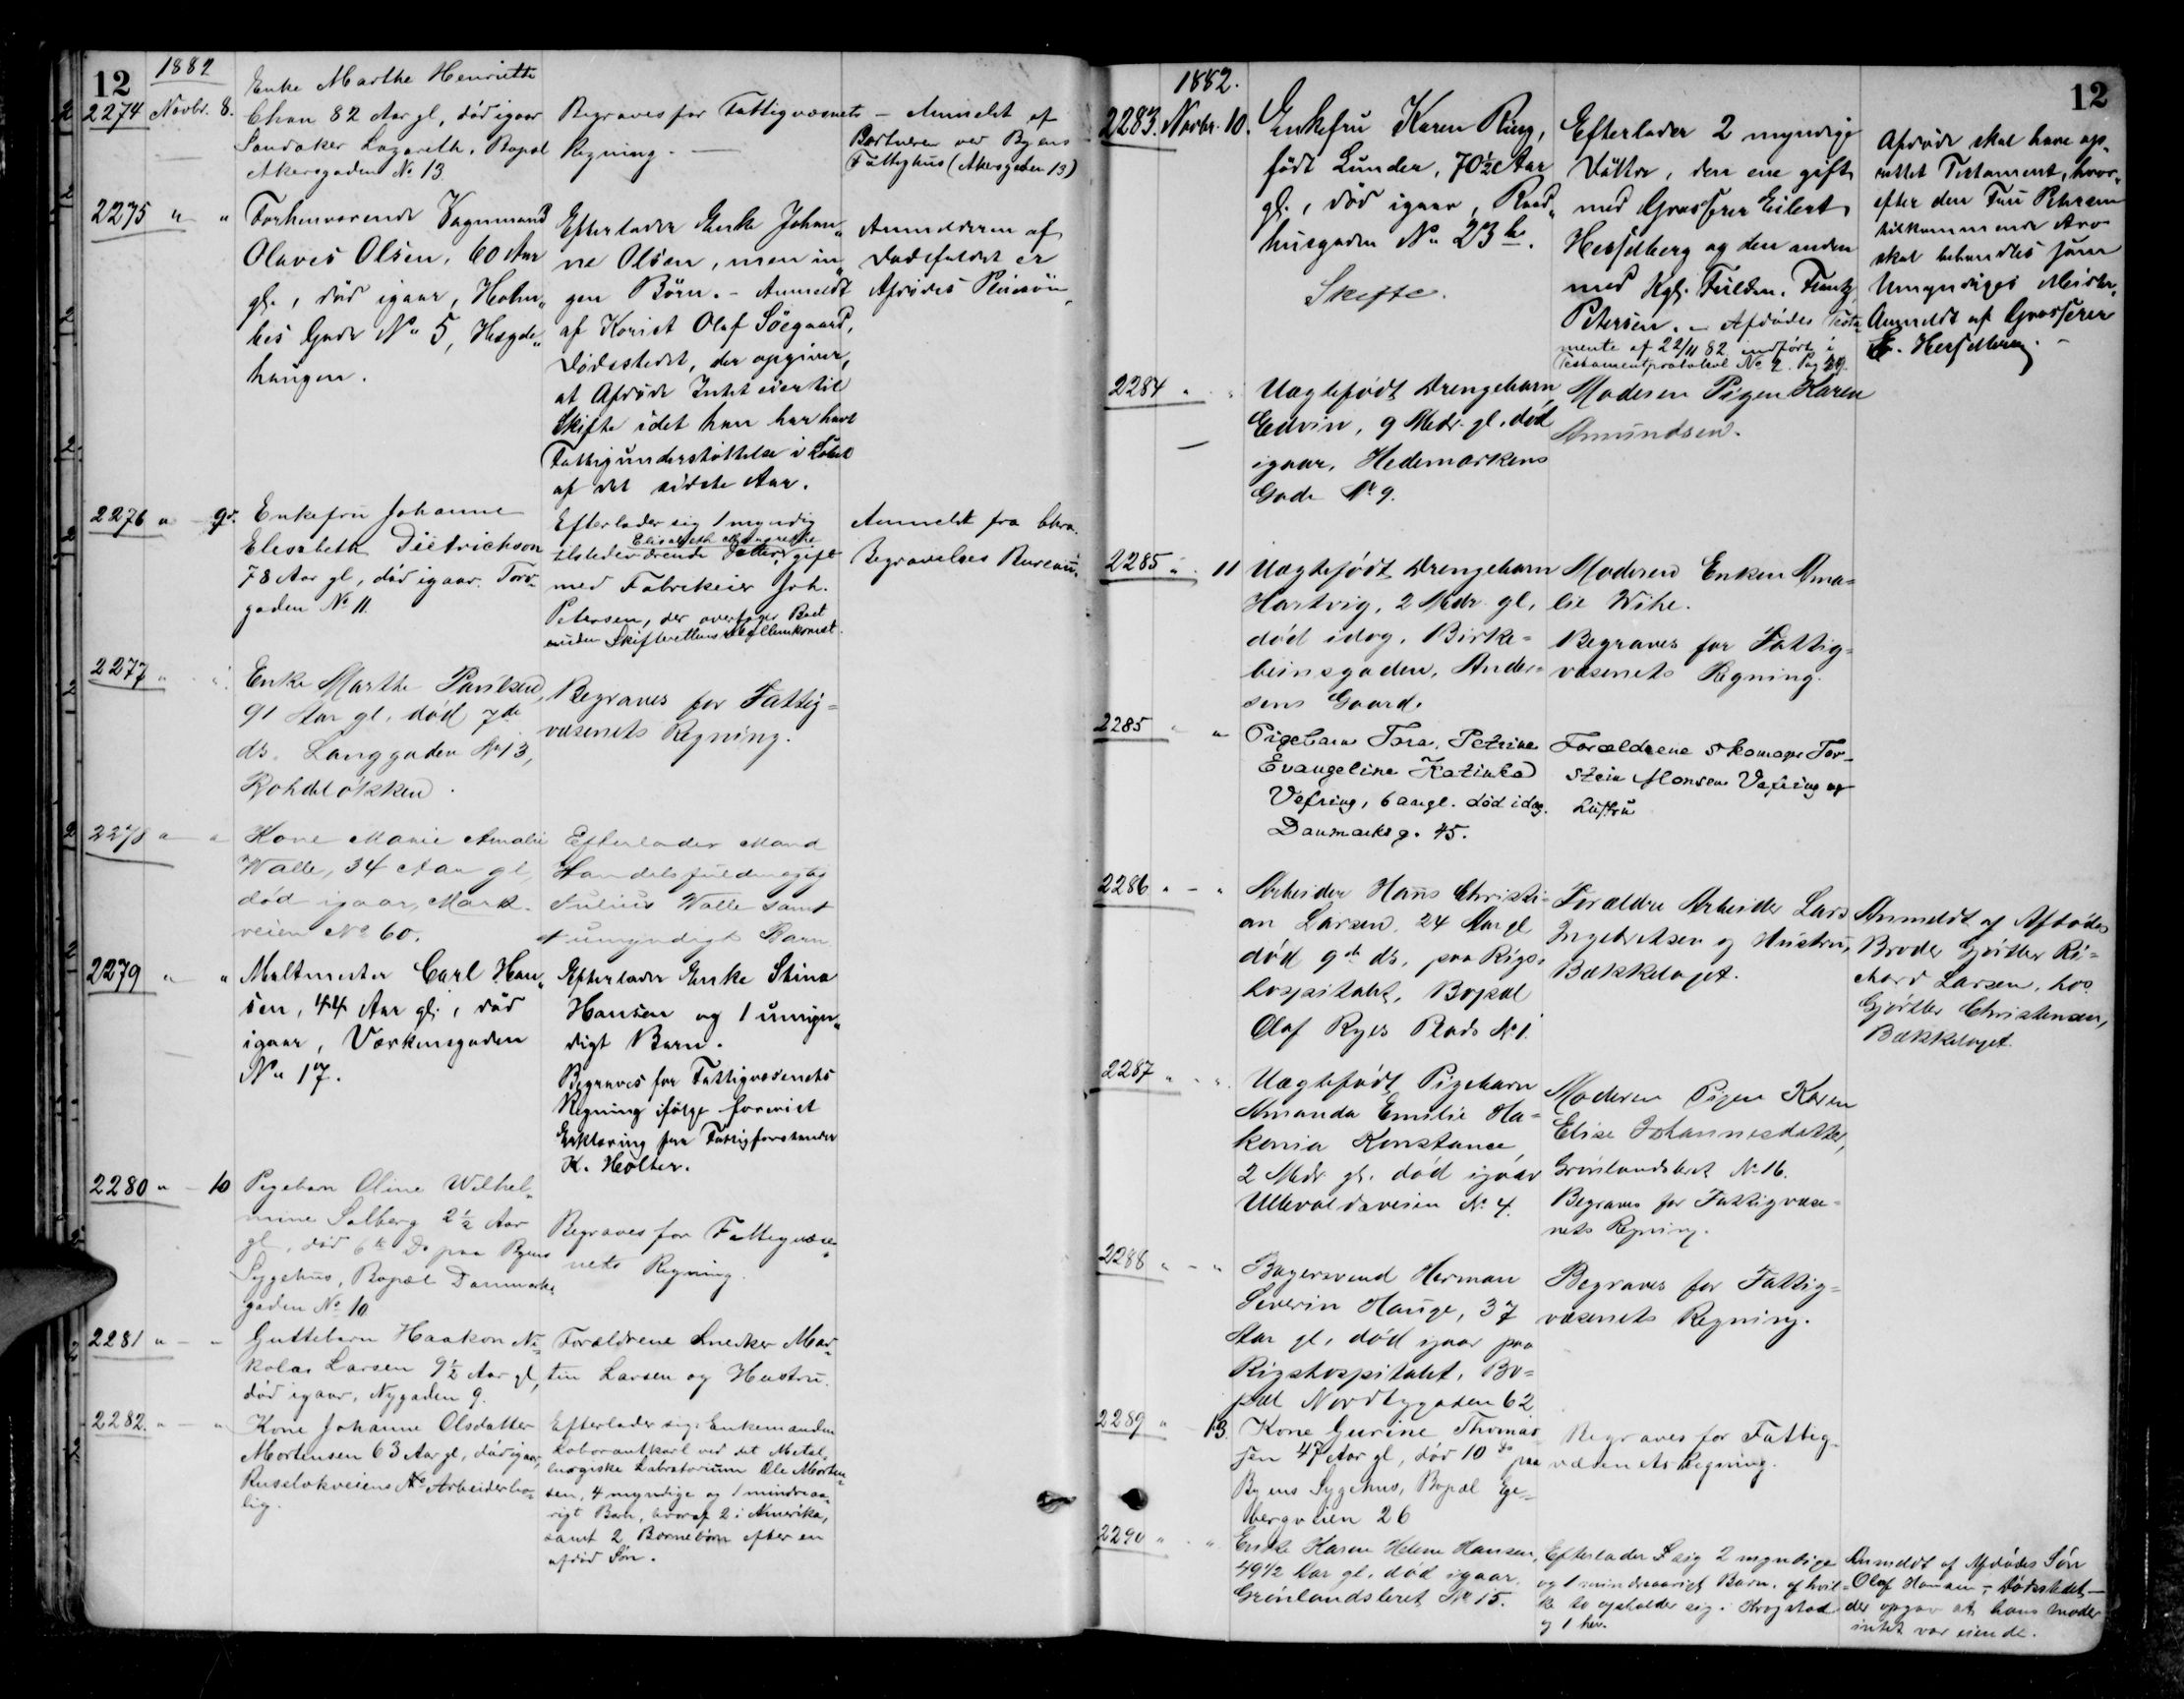 12
1882
2274 Novbr. 8.
Enke Marthe Henriette
Chan 82 Aar gl, død igaar
Sandaker Lazareth, Bopæl
Akersgaden No 13
Begraves for Fattigvæsnets
Regning. —
— Anmeldt af
Portneren ved Byens
Fattighus (Akersgaden 13)
2275 " "
Forhenværende Vognmand
Olaves Olsen, 60 Aar
gl., død igaar, Holm„
bes Gade No 5, Hægde„
haugen.
Efterlader Enke Johan„
ne Olsen, men in„
gen Börn. – Anmeldt
af Korist Olaf Söegaard,
Dödsstedet, der opgiver,
at Afdøde Intet eier til
Skifte idet han har havt
Fattigunderstöttelse i Löbet
af det sidste Aar.
Anmelderen af
Dødsfaldet er
Afdødes Pleiesön
2276 " 9de
Enkefru Johanne
Elisabeth Dietrichson
78 Aar gl, død igaar. Torv-
gaden No 11.
Efterlader sig 1 myndig
Elisabeth Margrethe
tilstedeværende Datter, gift
med Fabrikeier Joh.
Petersen, der overtager Boet
uden Skifterettens Mellemkomst.
Anmeldt fra Chra.
Begravelses Bureau.
2277 " "
Enke Marthe Paulsen,
91 Aar gl. død 7de
ds. Langgaden No 13,
Rohdeløkken.
Begraves for Fattig=
væsenets Regning.
2278 " "
Kone Marie Amalie
Walle, 34 Aar gl,
død igaar, Mark-
veien No 60.
Efterlader Mand
Handelsfuldmægtig
Julius Walle samt
umyndigt Barn
2279 " "
Maltmester Carl Han„
sen, 44 Aar gl., død
igaar, Værkensgaden
No 17.
Efterlader Enke Stina
Hansen og 1 umyn„
digt Barn.
Begraves for Fattigvæsenets
Regning ifølge forevist
Erklæring fra Fattigforstander
K. Holter.
2280 " – 10
Pigebarn Oline Wilhel„
mine Solberg 2½ Aar
gl, død 6te Ds paa Byens
Sygehus, Bopæl Danmarks
gaden No 10
Begraves for Fattigvæse„
nets Regning.
2281 " – "
Guttebarn Haakon Ni„
kolai Larsen 9½ Aar gl,
død igaar, Nygaden 9.
Forældrene Snedker Mar„
tin Larsen og Hustru.
2282. " – "
Kone Johanne Olsdatter
Mortensen 63 Aar gl, død igaar,
Ruseløkveiens Arbeiderbo„
lig.
Efterlader sig: Enkemanden
Laborantkarl ved det Metal„
lurgiske Labratorium Ole Morten„
sen, 4 myndige og 1 mindreaa„
rigt Barn, hvoraf 2 i Amerika,
samt 2 Børnebörn efter en
afdød Søn.
12
1882.
2283. Novbr. 10.
Enkefru Karen Ring,
født Lunder, 70½ Aar
gl., død igaar, Raad„
husgaden No 23 b.
Skifte.
Efterlader 2 myndige
Döttre, den ene gift
med Grosserer Eilert
Hesselberg og den anden
med Kgl. Fuldm. Frantz
Petersen. – Afdødes Testa„
mente af 22/11 82 indført i
Testamentprotokol No 2. Pag
Afdøde skal have op„
rettet Testament, hvor„
efter den Fru Petersen
tilkommende Arv
skal behandles som
Umyndiges Midler.
Anmeldt af Grosserer
E. Hesselberg. –
2284 " "
Uægtefødt Drengebarn
Edvin, 9 Mdr. gl. død
igaar, Hedemarkens
Gade No 9.
Moderen Pigen Karen
Amundsen.
2285 " 11
Uægtefødt Drengebarn
Hartvig, 2 Mdr. gl,
død idag, Birke=
beinsgaden, Ander=
sens Gaard.
Moderen Enken Ama=
lie Wihe.
Begraves for Fattig=
væsenets Regning.
2285 " "
Pigebarn Tora, Petrine
Evangeline Katinka
Vefring, 6 aar gl. død idag.
Danmarksg. 45.
Forældrene Skomager Tor-
stein Monsen Vefring og
Hustru
2286 " – "
Arbeider Hans Christi=
an Larsen, 24 Aar gl
død 9de ds. paa Rigs=
hospitalet, Bopæl
Olaf Ryes Plads No 1.
Forældre Arbeider Lars
Ingebretsen og Hustru,
Bækkelaget.
Anmeldt af Afdødes
Broder Gjørtler Ri=
chard Larsen, hos
Gjørtler Christensen,
Bækkelaget.
2287 " "
Uægtefødt Pigebarn
Amanda Emilie Ha=
konia Konstance
2 Mdr. gl. død igaar
Ullevoldsveien No 4.
Moderen Pigen Karen
Elise Johannesdatter,
Grønlandsleret No 16.
Begraves for Fattigvæse=
nets Regning.
2288 " – "
Bagersvend Herman
Severin Hauge, 37
Aar gl, død igaar paa
Rigshospitalet, Bo=
pæl Nordbygaden 62
Begraves for Fattig=
væsenets Regning.
2289 " 13.
Kone Gurine Thomas
sen 47 Aar gl, død 10 ds paa
Byens Sygehus, Bopæl Ege„
bergveien 26
Begraves for Fattig-
væsenets Regning.
2290 " "
Enke Karen Helene Hansen,
49 1/2 Aar gl. død igaar.
Grønlandsleret No 15.
Efterlader sig 2 myndige
og 1 mindreaarigt Barn, af hvil=
ke to opholder sig i Krogstad
og 1 her.
Anmeldt af Afdødes Søn
Olaf Hansen, – Dødsstedet –
der opgav at hans moder
intet var eiende.